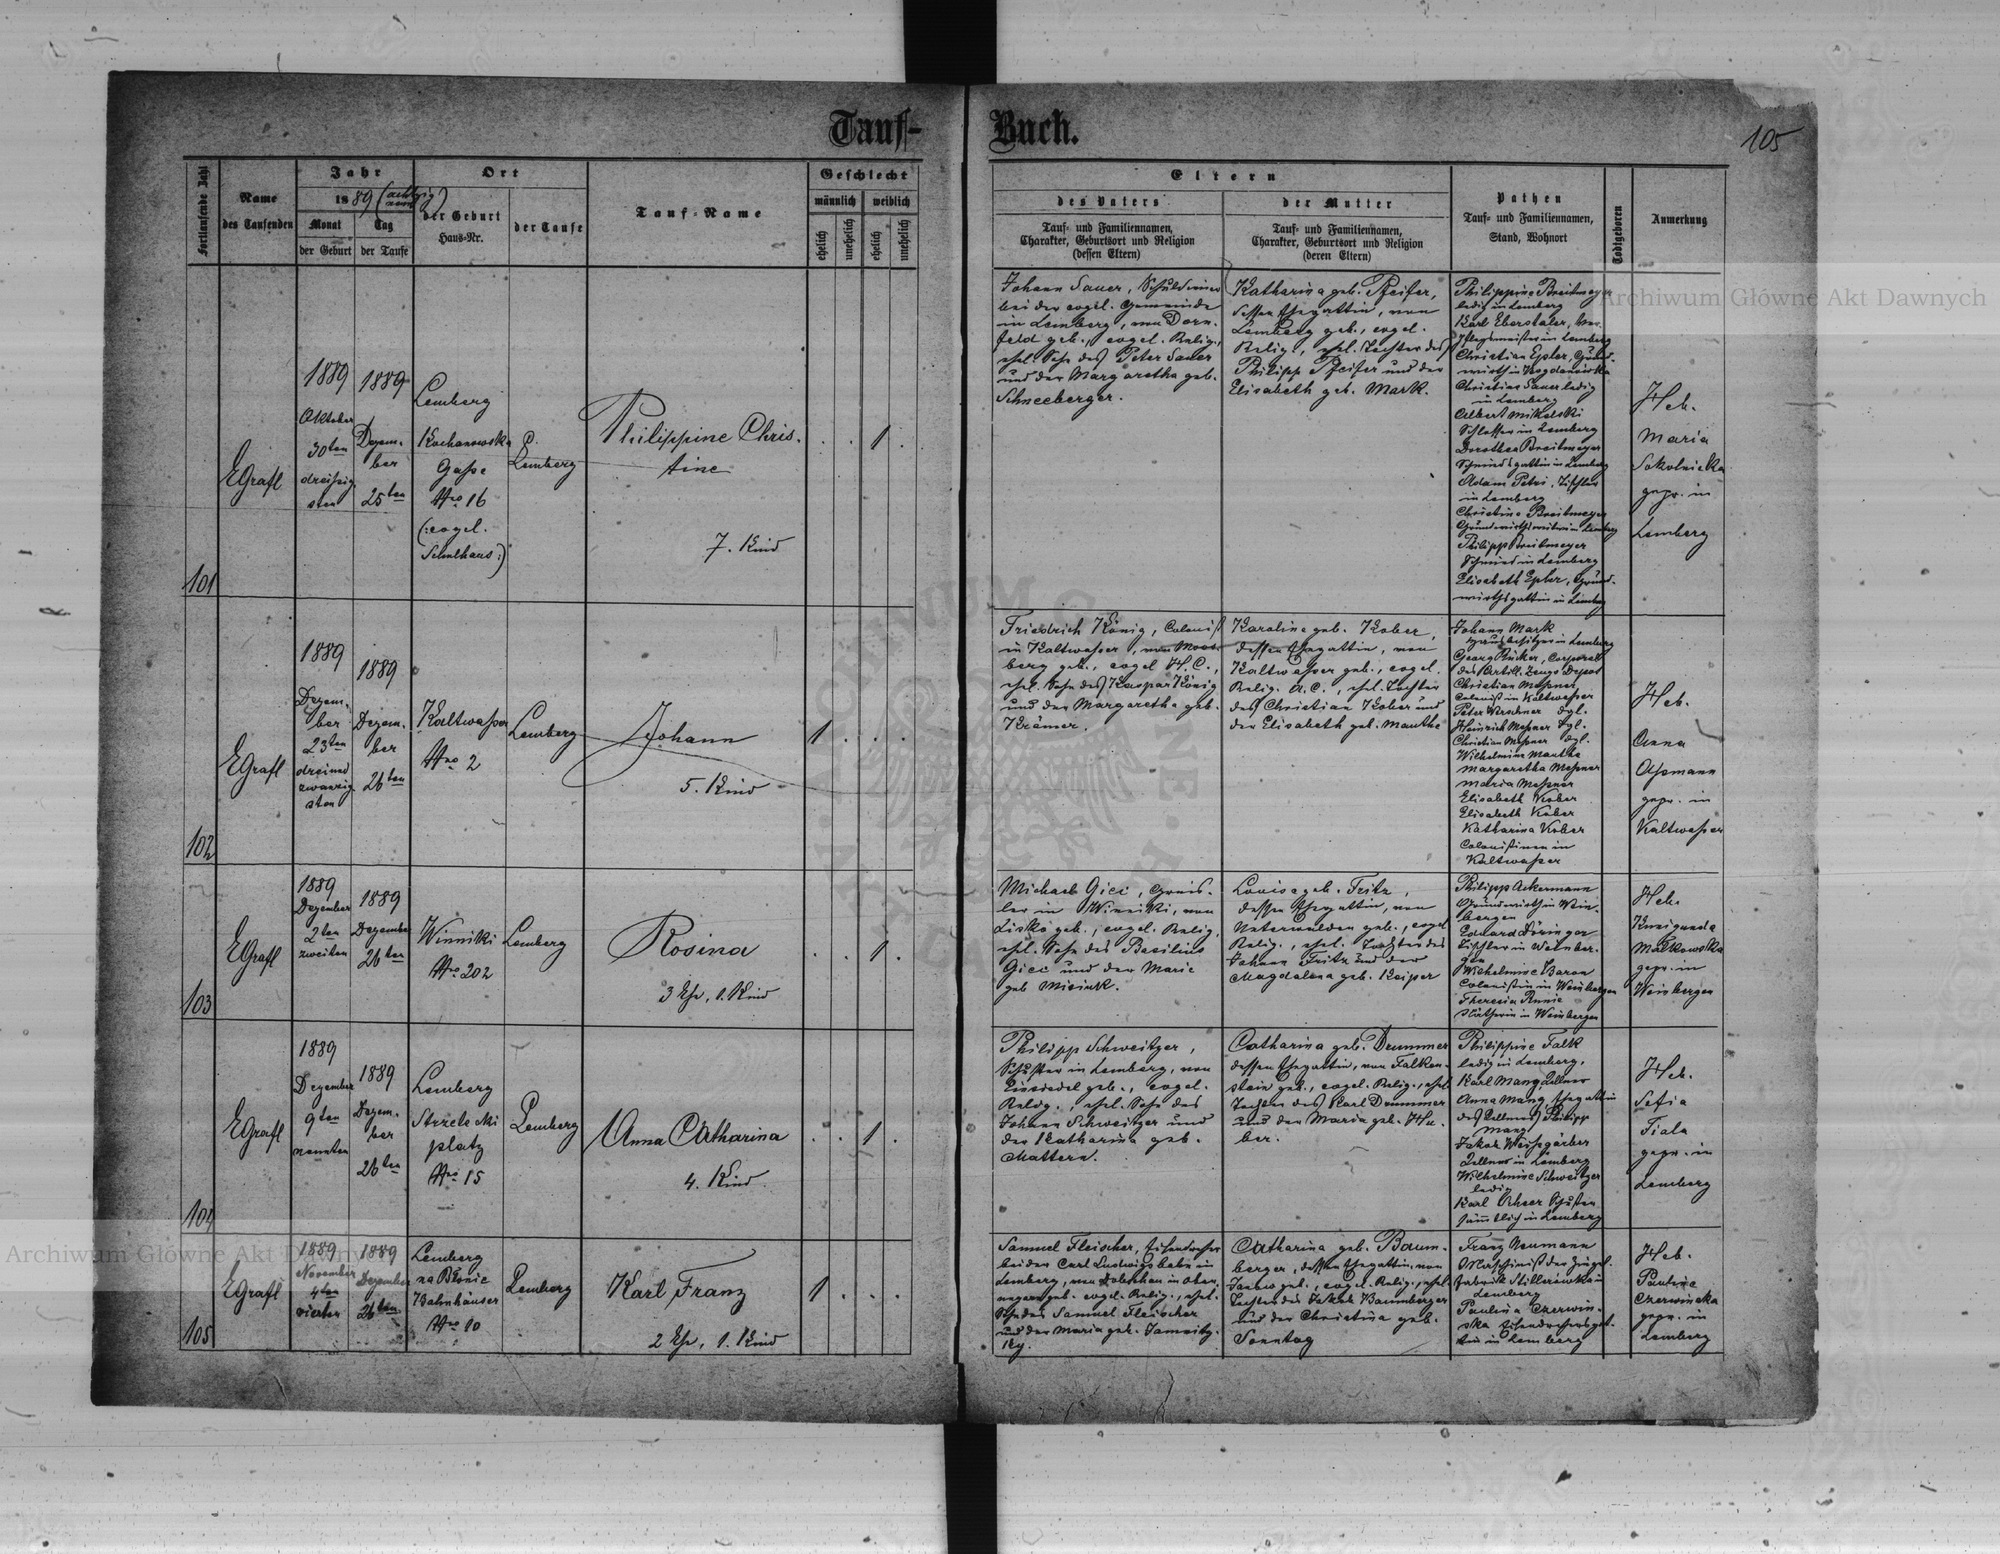 Tauf-
Buch.
105
Fortlaufende Zahl
Name
des Taufenden
Jahr
1889 (achtzig neun)
Monat
der Geburt
Tag
der Taufe
Ort
der Geburt
Haus-Nr.
der Taufe
Tauf-Name
Geschlecht
männlich
weiblich
ehelich
unehelich
ehelich
unehelich
Eltern
des Vaters
Tauf- und Familiennamen,
Charakter, Geburtsort und Religion
(dessen Eltern)
der Mutter
Tauf- und Familiennamen,
Charakter, Geburtsort und Religion
(deren Eltern)
Pathen
Tauf- und Familiennamen,
Stand, Wohnort
Todtgeboren
Anmerkung
101
EGrafl
1889
Oktober
30ten
dreißig
sten
1889
Dezem-
ber
25ten
Lemberg
Kochanowska
Gasse
Nro 16
(:evgel.
Schulhaus:)
Lemberg
Philippine Chris-
tine
7. Kind
1
Johann Sauer, Schuldiener
bei der evgl. Gemeinde
in Lemberg, von Dorn-
feld geb., evgel. Relig.,
ehel. Sohn des Peter Sauer
und der Margaretha geb.
Schneeberger.
Katharina geb. Pfeifer,
dessen Ehegattin, von
Lemberg geb., evgel.
Relig., ehel. Tochter des
Philipp Pfeifer und der
Elisabeth geb. Mark.
Philippine Breitmeyer
ledig in Lemberg
Karl Eberstaler, Ver-
pflegsmeister in Lemberg
Christian Epler, Grund-
wirth in Bogdanówka
Christine Sauer ledig
in Lemberg
Albert Mikolski
Schlosser in Lemberg
Dorothea Breitmeyer
Schmiedsgattin in Lemberg
Adam Petri, Tischler
in Lemberg
Christine Breitmeyer
Grundwirthswitwe in Lemberg
Philipp Breitmeyer
Schmied in Lemberg
Elisabeth Epler, Grund-
wirthsgattin in Lemberg
Heb.
Maria
Sokolnicka
gepr. in
Lemberg
102
EGrafl
1889
Dezem-
ber
23ten
dreiund
zwanzig
sten
1889
Dezem-
ber
26ten
Kaltwasser
Nro 2
Lemberg
Johann
5. Kind
1
Friedrich König, Colonist
in Kaltwasser, von Moos-
berg geb., evgel. H.C.,
ehel. Sohn des Kaspar König
und der Margaretha geb.
Krämer.
Karoline geb. Kober,
dessen Ehegattin, von
Kaltwasser geb., evgel.
Relig. A.C., ehel. Tochter
des Christian Kober und
der Elisabeth geb. Manthe
Johann Mark
Hausbesitzer in Lemberg
des Artill. Zeugs Depot
Christian Messner
Colonist in Kaltwasser
Heinrich Messner dgl.
Christian Messner dgl.
Wilhelmine Manthe
Margaretha Messner
Maria Messner
Elisabeth Kober
Elisabeth Kober
Katharina Kober
Colonistinen in
Kaltwasser
Heb.
Anna
Assmann
gepr. in
Kaltwasser
103
EGrafl
1889
Dezember
2ten
zweiten
1889
Dezember
26ten
Winniki
Nro 202
Lemberg
Rosina
3 Ehe, 1. Kind
1
Michael Gicci,
in Winniki, von
Lisko geb., evgel. Relig.,
ehel. Sohn des Basilius
Gicci und der Marie
geb Misiuk.
Louise geb. Fritz,
dessen Ehegattin, von
Unterwalden geb., evgel.
Relig., ehel. Tochter des
Johann Fritz und der
Magdalena geb. Keiper
Philipp Ackermann
Grundwirth in Wein-
bergen
Eduard Döringer
Tischler in Weinber-
gen
Wilhelmine Baron
Colonistin in Weinbergen
Theresia
Nätherin in Weinbergen
Heb.
Kunigunda
Małkowska
gepr. in
Weinbergen
104
EGrafl
1889
Dezember
9ten
neunten
1889
Dezem-
ber
26ten
Lemberg
Strzelecki
platz
Nro 15
Lemberg
Anna Catharina
4. Kind
1
Philipp Schweitzer,
Schuster in Lemberg, von
Einsiedel geb., evgel.
Relig., ehel. Sohn des
Johann Schweitzer und
der Katharina geb.
Mattern.
Catharina geb. Drummer
dessen Ehegattin, von Falken-
stein geb., evgel. Relig., ehel.
Tochter des Karl Drummer
und der Maria geb. Hu-
ber.
Philippine Falk
ledig in Lemberg,
Karl Mang Kellner
Anna Mang Ehegattin
des Kellners Philipp
Mang
Jakob Weissgärber
Kellner in Lemberg
Wilhelmine Schweitzer
ledig
Karl Scheer Schuster
sämmtlich in Lemberg
Heb.
Sofia
Fiala
gepr. in
Lemberg
105
EGrafl
1889
November
4ten
vierten
1889
Dezember
26ten
Lemberg
na Błonie
Bahnhäuser
Nro 10
Lemberg
Karl Franz
2 Ehe, 1. Kind
1
Samuel Fleischer, Eisendreher
bei der Carl Ludwigsbahn in
Lemberg, von Dobschau in Ober-
ungarn geb. evgel. Relig., ehel.
Sohn des Samuel Fleischer
und der Maria geb. Jamnitz-
ky.
Catharina geb. Baum-
berger, dessen Ehegattin, von
Janow geb., evgel. Relig., ehel.
Tochter des Jakob Baumberger
und der Christina geb.
Sonntag
Franz Neumann
Maschinist der Ziegel-
fabrik Stillerówka in
Lemberg
Paulina Czerwin-
ska Eisendrehersgat-
tin in Lemberg
Heb.
Paulina
Czerwinska
gepr. in
Lemberg
Archiwum Główne Akt Dawnych
Archiwum Główne Akt Dawnych